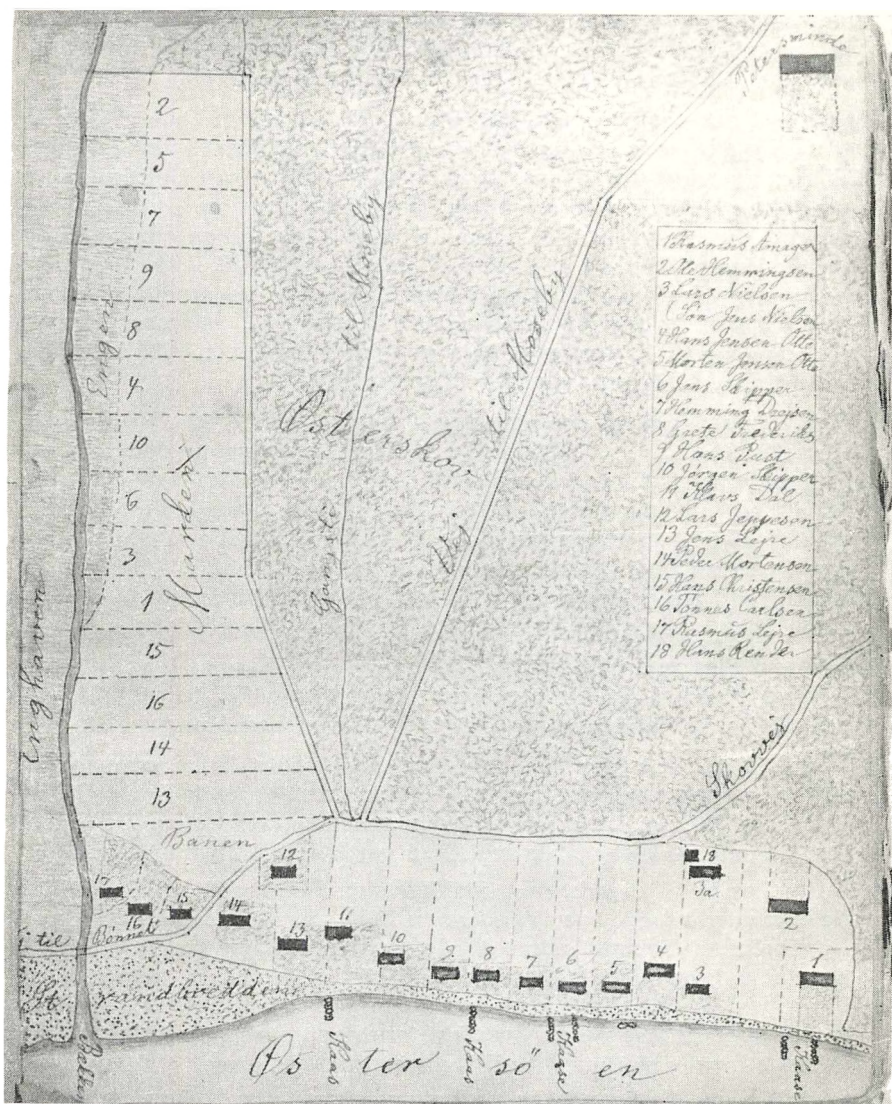 Petersminde
2
5
7
9
8
4
10
6
3
1
15
16
14
13
Engen
Marken
Enghaven
Gangsti til Moseby
Østerskov
Vej til Moseby
1 Rasmus Amager
2 Ole Hemmingsen
3 Lars Nielsen
Søn Jens Nielsen
4 Hans Jensen Otto
5 Morten Jensen Otto
6 Jens Skipper
7 Hemming Drejsen
8 Grete Frederiks
9 Hans Just
10 Jørgen Skipper
11 Klavs Dal
12 Lars Jeppesen
13 Jens Lejre
14 Peder Mortensen
15 Hans Kristensen
16 Tönnes Carlsen
17 Rasmus Lejre
18 Hans Render
Skovvej
Banen
12
18
3a.
17
16
15
14
13
11
10
9
8
7
6
5
4
3
2
1
j til Bønnet
Strandbredden
Bækken
Kaas
Kaas
Kaase
Kaase
Østersöen